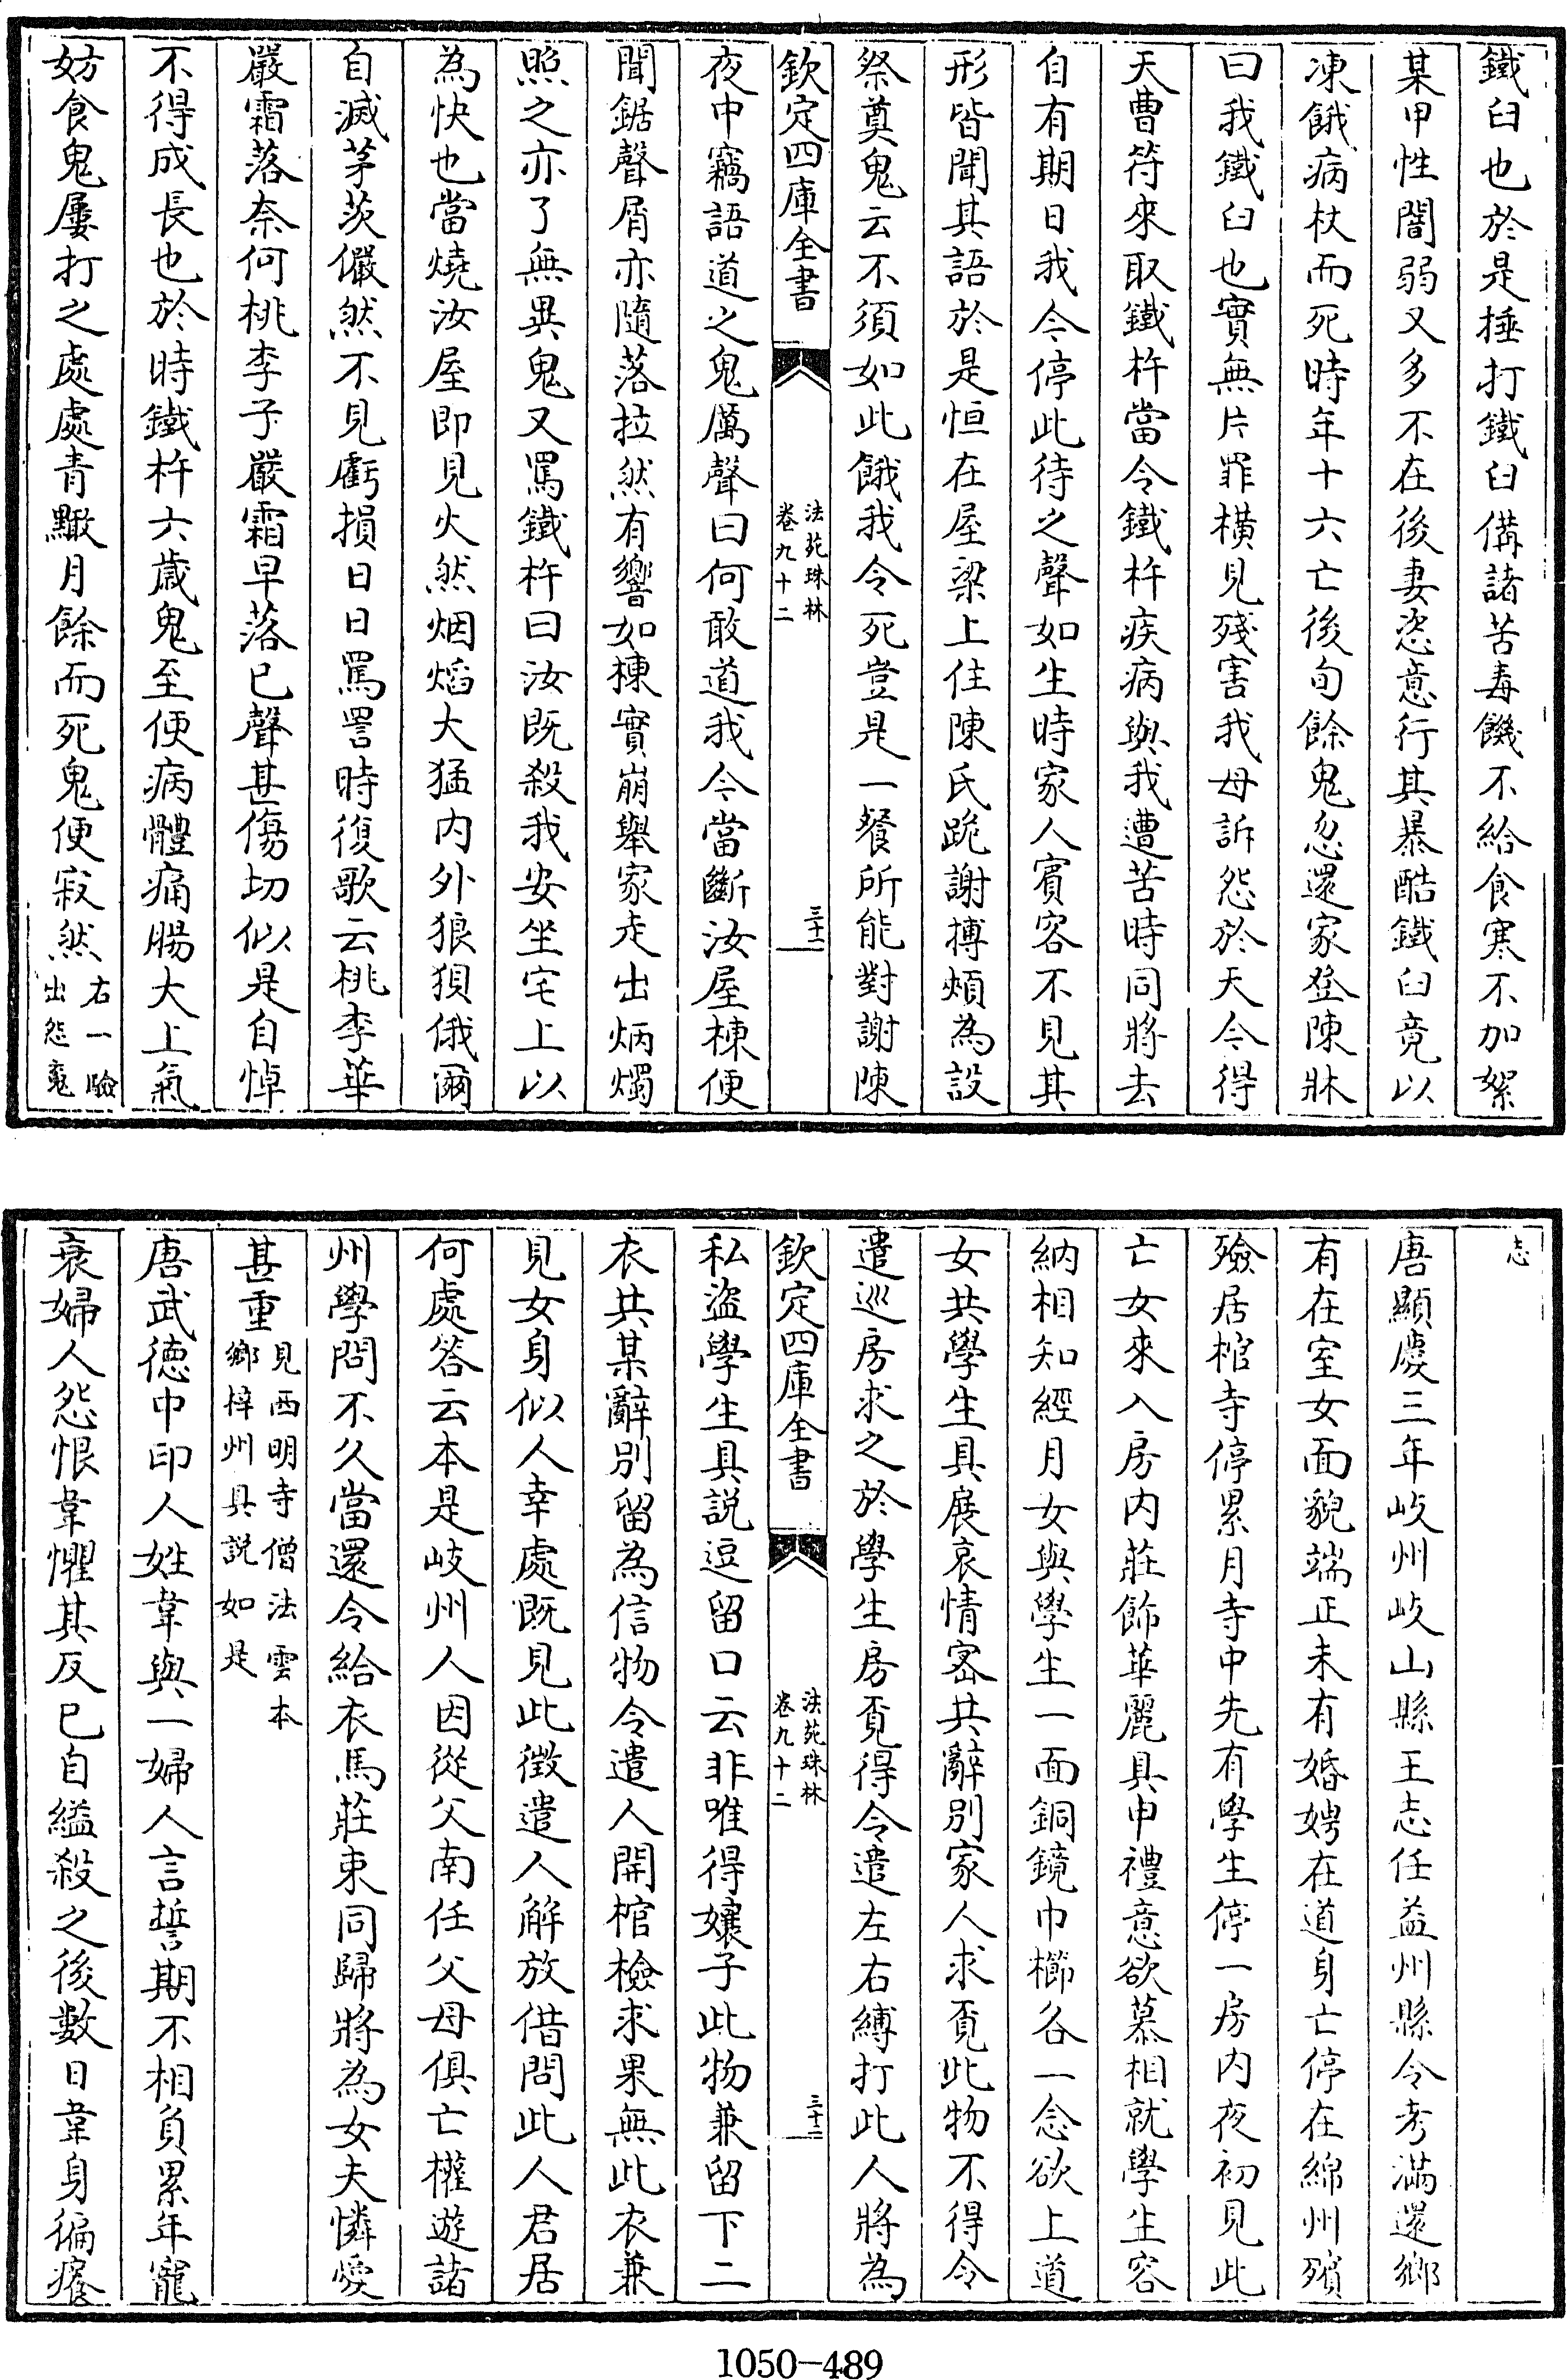 鐵臼也於是捶打鐵臼備諸苦毒饑不給食寒不加絮
某甲性闇弱又多不在後妻恣意行其暴酷鐵臼竟以
凍餓病杖而死時年十六亡後旬餘鬼忽還家登陳牀
曰我鐵臼也實無片罪橫見殘害我母訴怨於天今得
天曹符來取鐵杵當令鐵杵疾病與我遭苦時同將去
自有期日我今停此待之聲如生時家人賓客不見其
形皆聞其語於是恒在屋梁上住陳氏跪謝搏頰為設
祭奠鬼云不須如此餓我令死豈是一餐所能對謝陳
欽定四庫全書
法苑珠林
卷九十二
三十一
夜中竊語道之鬼厲聲曰何敢道我今當斷汝屋棟便
聞鋸聲屑亦隨落拉然有響如棟實崩舉家走出炳燭
照之亦了無異鬼又罵鐵杵曰汝既殺我安坐宅上以
為快也當燒汝屋即見火然烟焰大猛內外狼狽俄爾
自滅茅茨儼然不見虧損日日罵詈時復歌云桃李華
嚴霜落奈何桃李子嚴霜早落已聲甚傷切似是自悼
不得成長也於時鐵杵六歲鬼至便病體痛腸大上氣
妨食鬼屢打之處處青黶月餘而死鬼便寂然
右一驗
出怨魂
志
唐顯慶三年岐州岐山縣王志任益州縣令考滿還鄉
有在室女面貌端正未有婚娉在道身亡停在綿州殯
殮居棺寺停累月寺中先有學生停一房內夜初見此
亡女來入房內莊飾華麗具申禮意欲慕相就學生容
納相知經月女與學生一面銅鏡巾櫛各一念欲上道
女共學生具展哀情密共辭別家人求覓此物不得令
遣巡房求之於學生房覓得令遣左右縛打此人將為
欽定四庫全書
法苑珠林
卷九十二
三十二
私盜學生具說逗留口云非唯得孃子此物兼留下二
衣共某辭別留為信物令遣人開棺檢求果無此衣兼
見女身似人幸處既見此徵遣人解放借問此人君居
何處答云本是岐州人因從父南任父母俱亡權遊諸
州學問不久當還令給衣馬莊束同歸將為女夫憐愛
甚重
見西明寺僧法雲本
鄉梓州具說如是
唐武德中印人姓韋與一婦人言誓期不相負累年寵
衰婦人怨恨韋懼其反己自縊殺之後數日韋身徧癢
1050-489